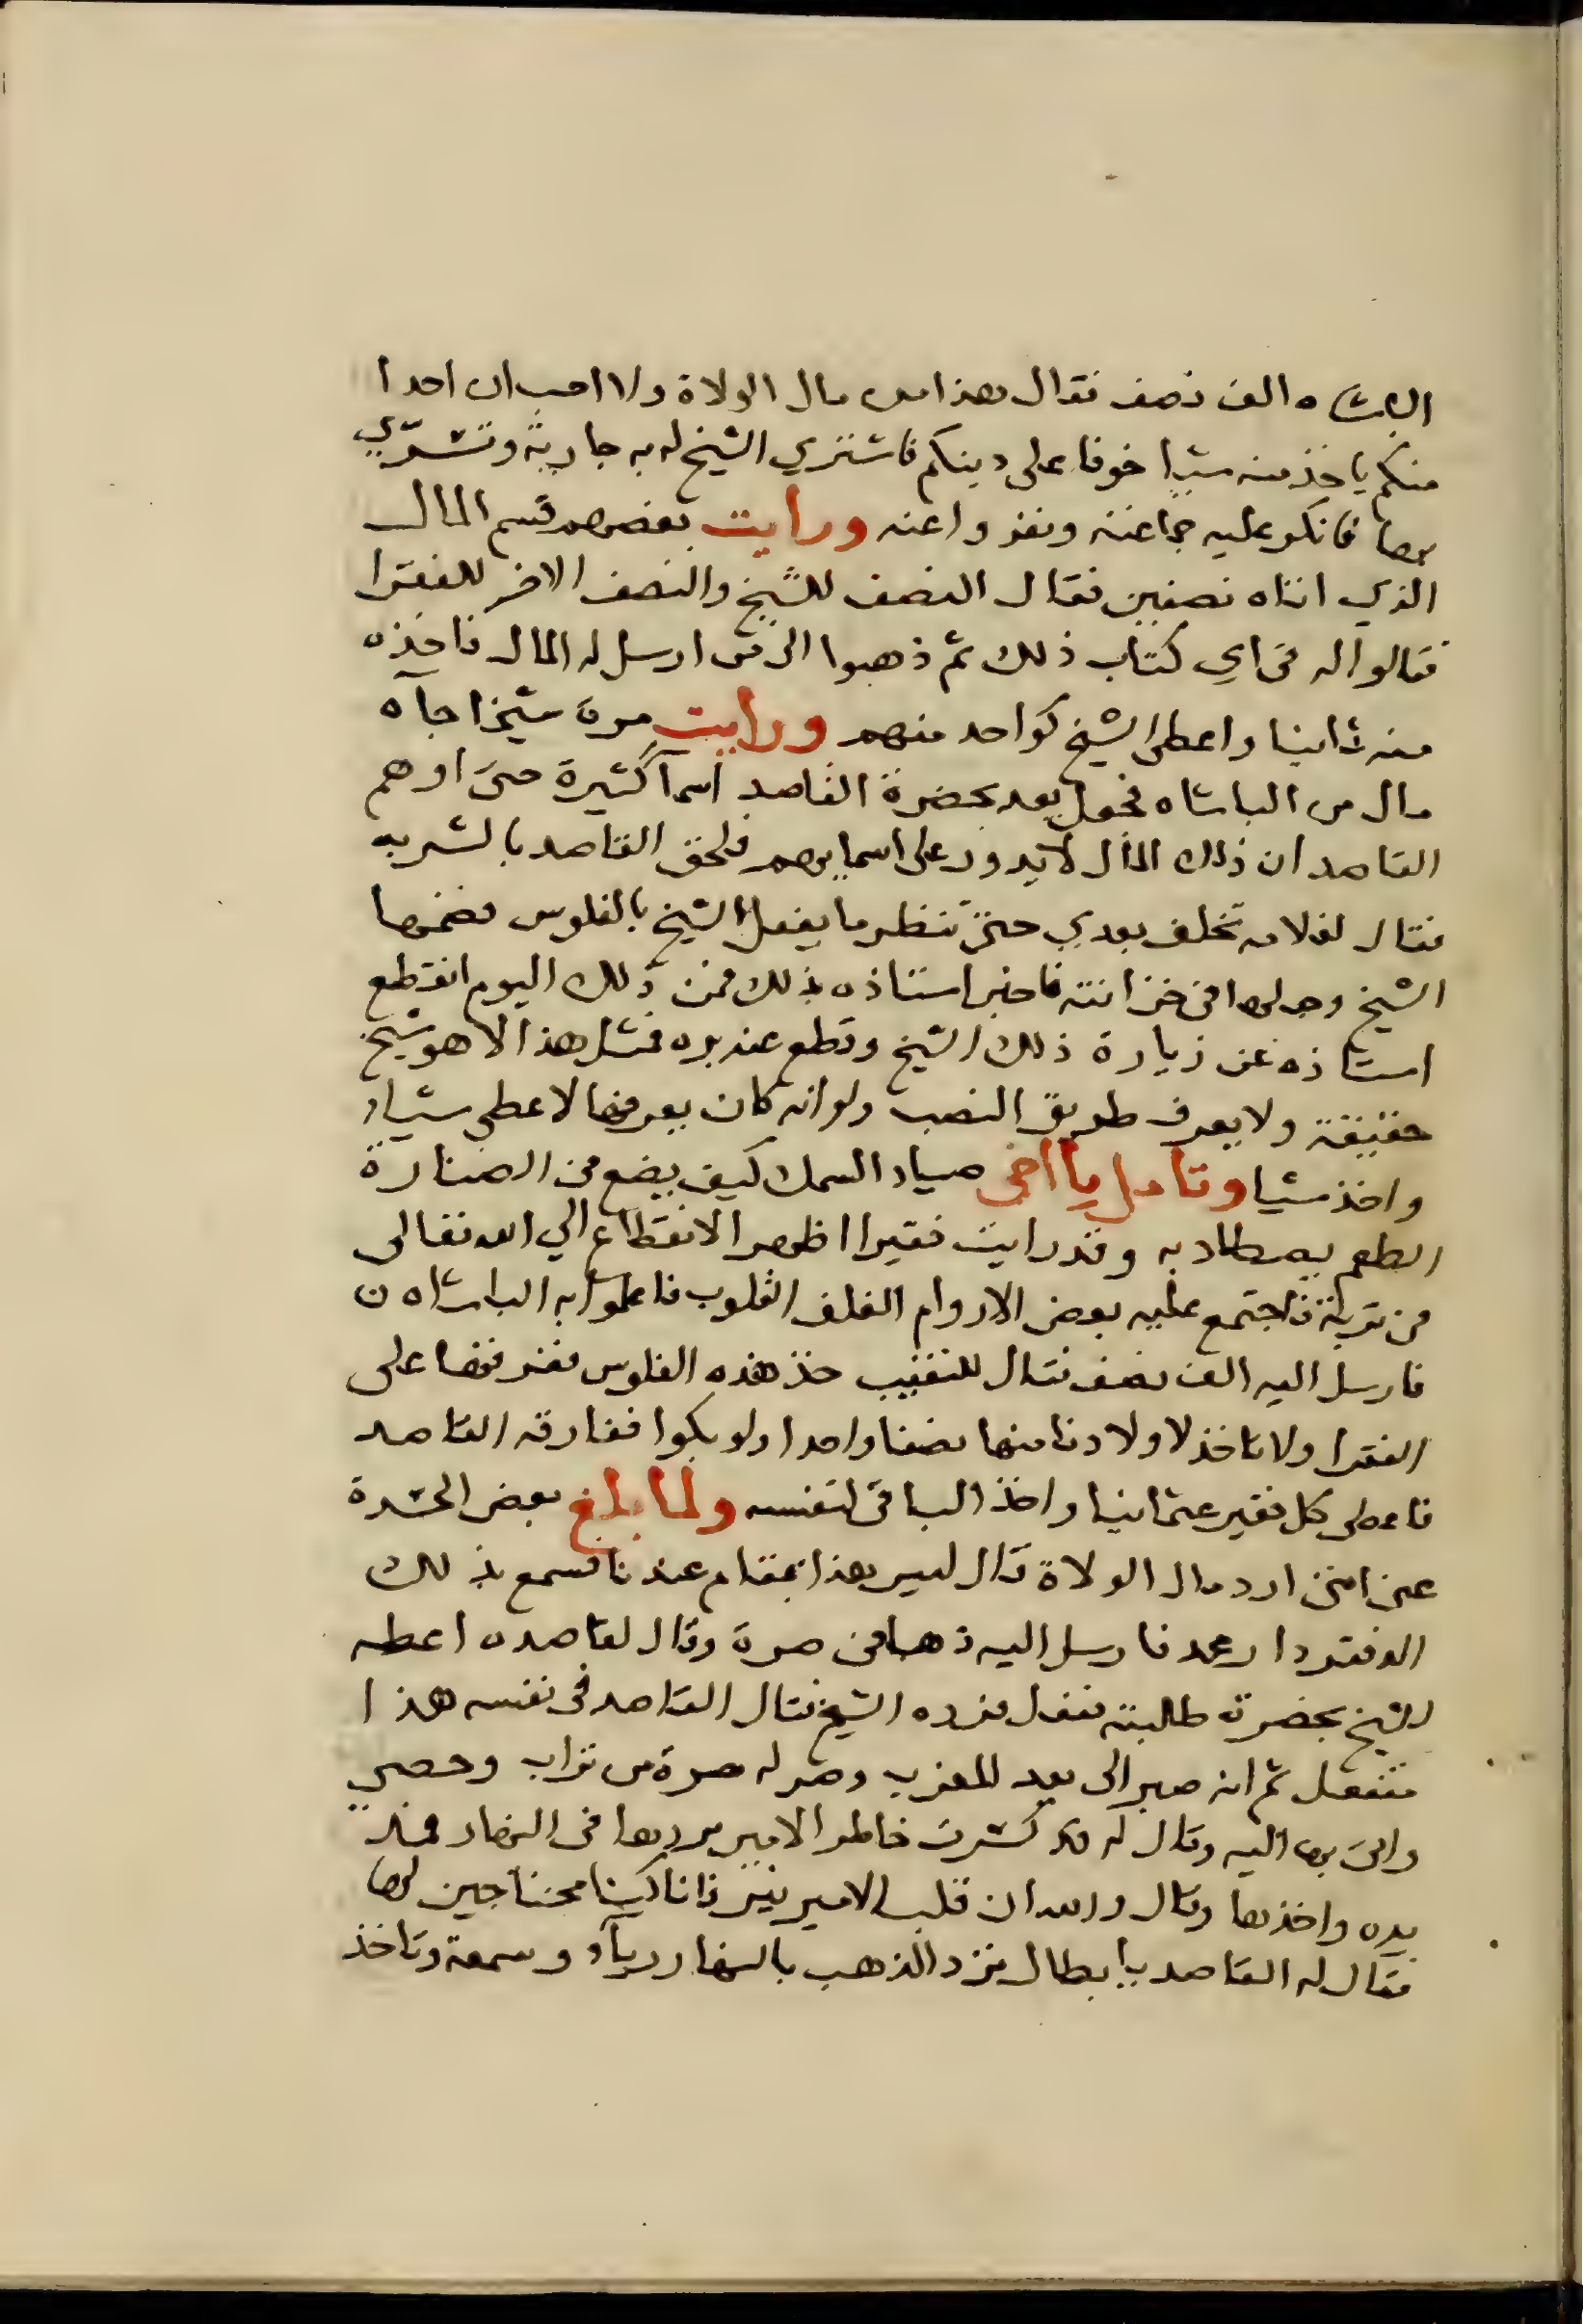 الباشاه الف نصف فقال هذا من مال الولاة ولا احب ان احدا
منكم ياخذ منه شيا خوفا على دينكم فاشتري الشيخ له به جارية وتسرّي
بها فانكر عليه جماعته ونفروا عنه ورايت بعضهم قسم المال
الذي اتاه نصفين فقال النصف للشيخ والنصف الاخر للفقرا
فقالوا له في اي كتاب ذلك ثم ذهبوا الى من ارسل له المال فاخذه
منه ثانيا واعطى الشيخ كواحد منهم ورايت مرة شيخا جآه
مال من الباشاه فجعل يعد بحضرة القاصد اسما كثيرة حتى اوهم
القاصد ان ذلك المال لا يدور على اسمايهم فلحق القاصد بالشربه
فقال لغلامه تخلف بعدي حتى تنظر ما يفعل الشيخ بالفلوس فضمها
الشيخ وجعلها في خزانته فاخبر استاذه بذلك فمن ذلك اليوم انقطع
استاذه عن زيارة ذلك الشيخ وقطع عنه بره فمثل هذا لا هو شيخ
حقيقة ولا يعرف طريق النصب ولو انه كان يعرفها لاعطى شيا
واخذ شيا وتامل يا اخي صياد السمك كيف يضع في الصنارة
الطعم يصطاد به وقد رايت فقيرا اظهر الانقطاع الي الله تعالى
في تربة فاجتمع عليه بعض الاروام الغلف القلوب فاعلموا به الباشاه
فارسل اليه الف نصف فقال للنقيب خذ هذه الفلوس ففرقها على
الفقرا ولا تاخذ لاولادنا منها نصفا واحدا ولو بكوا ففارقه القاصد
فاعطى كل فقير عثمانيا واخذ الباقي لنفسه ولما بلغ بعض الحسدة
عني انني ارد مال الولاة قال ليس هذا بمقام عندنا فسمع بذلك
الدفتردار محمد فارسل اليه ذهبا في صرة وقال لقاصده اعطه
الشيخ بحضرة طالبته ففعل فرده الشيخ فقال القاصد في نفسه هذا
متفعل ثم انه صبر الى بعد المغرب وصر له صرة من تراب وحصي
واتى بها اليه وقال له قد كسرت خاطر الامير بردها في النهار فمد
يده واخذها وقال والله ان قلب الامير نير فاننا كنا محتاجين لها
فقال له القاصد يا بطال ترد الذهب بالنهار ريآء وسمعة وتاخذ